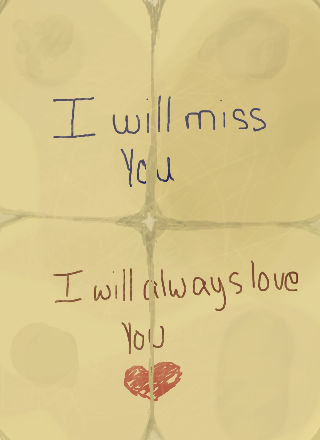 I will miss
You
I will always love
You